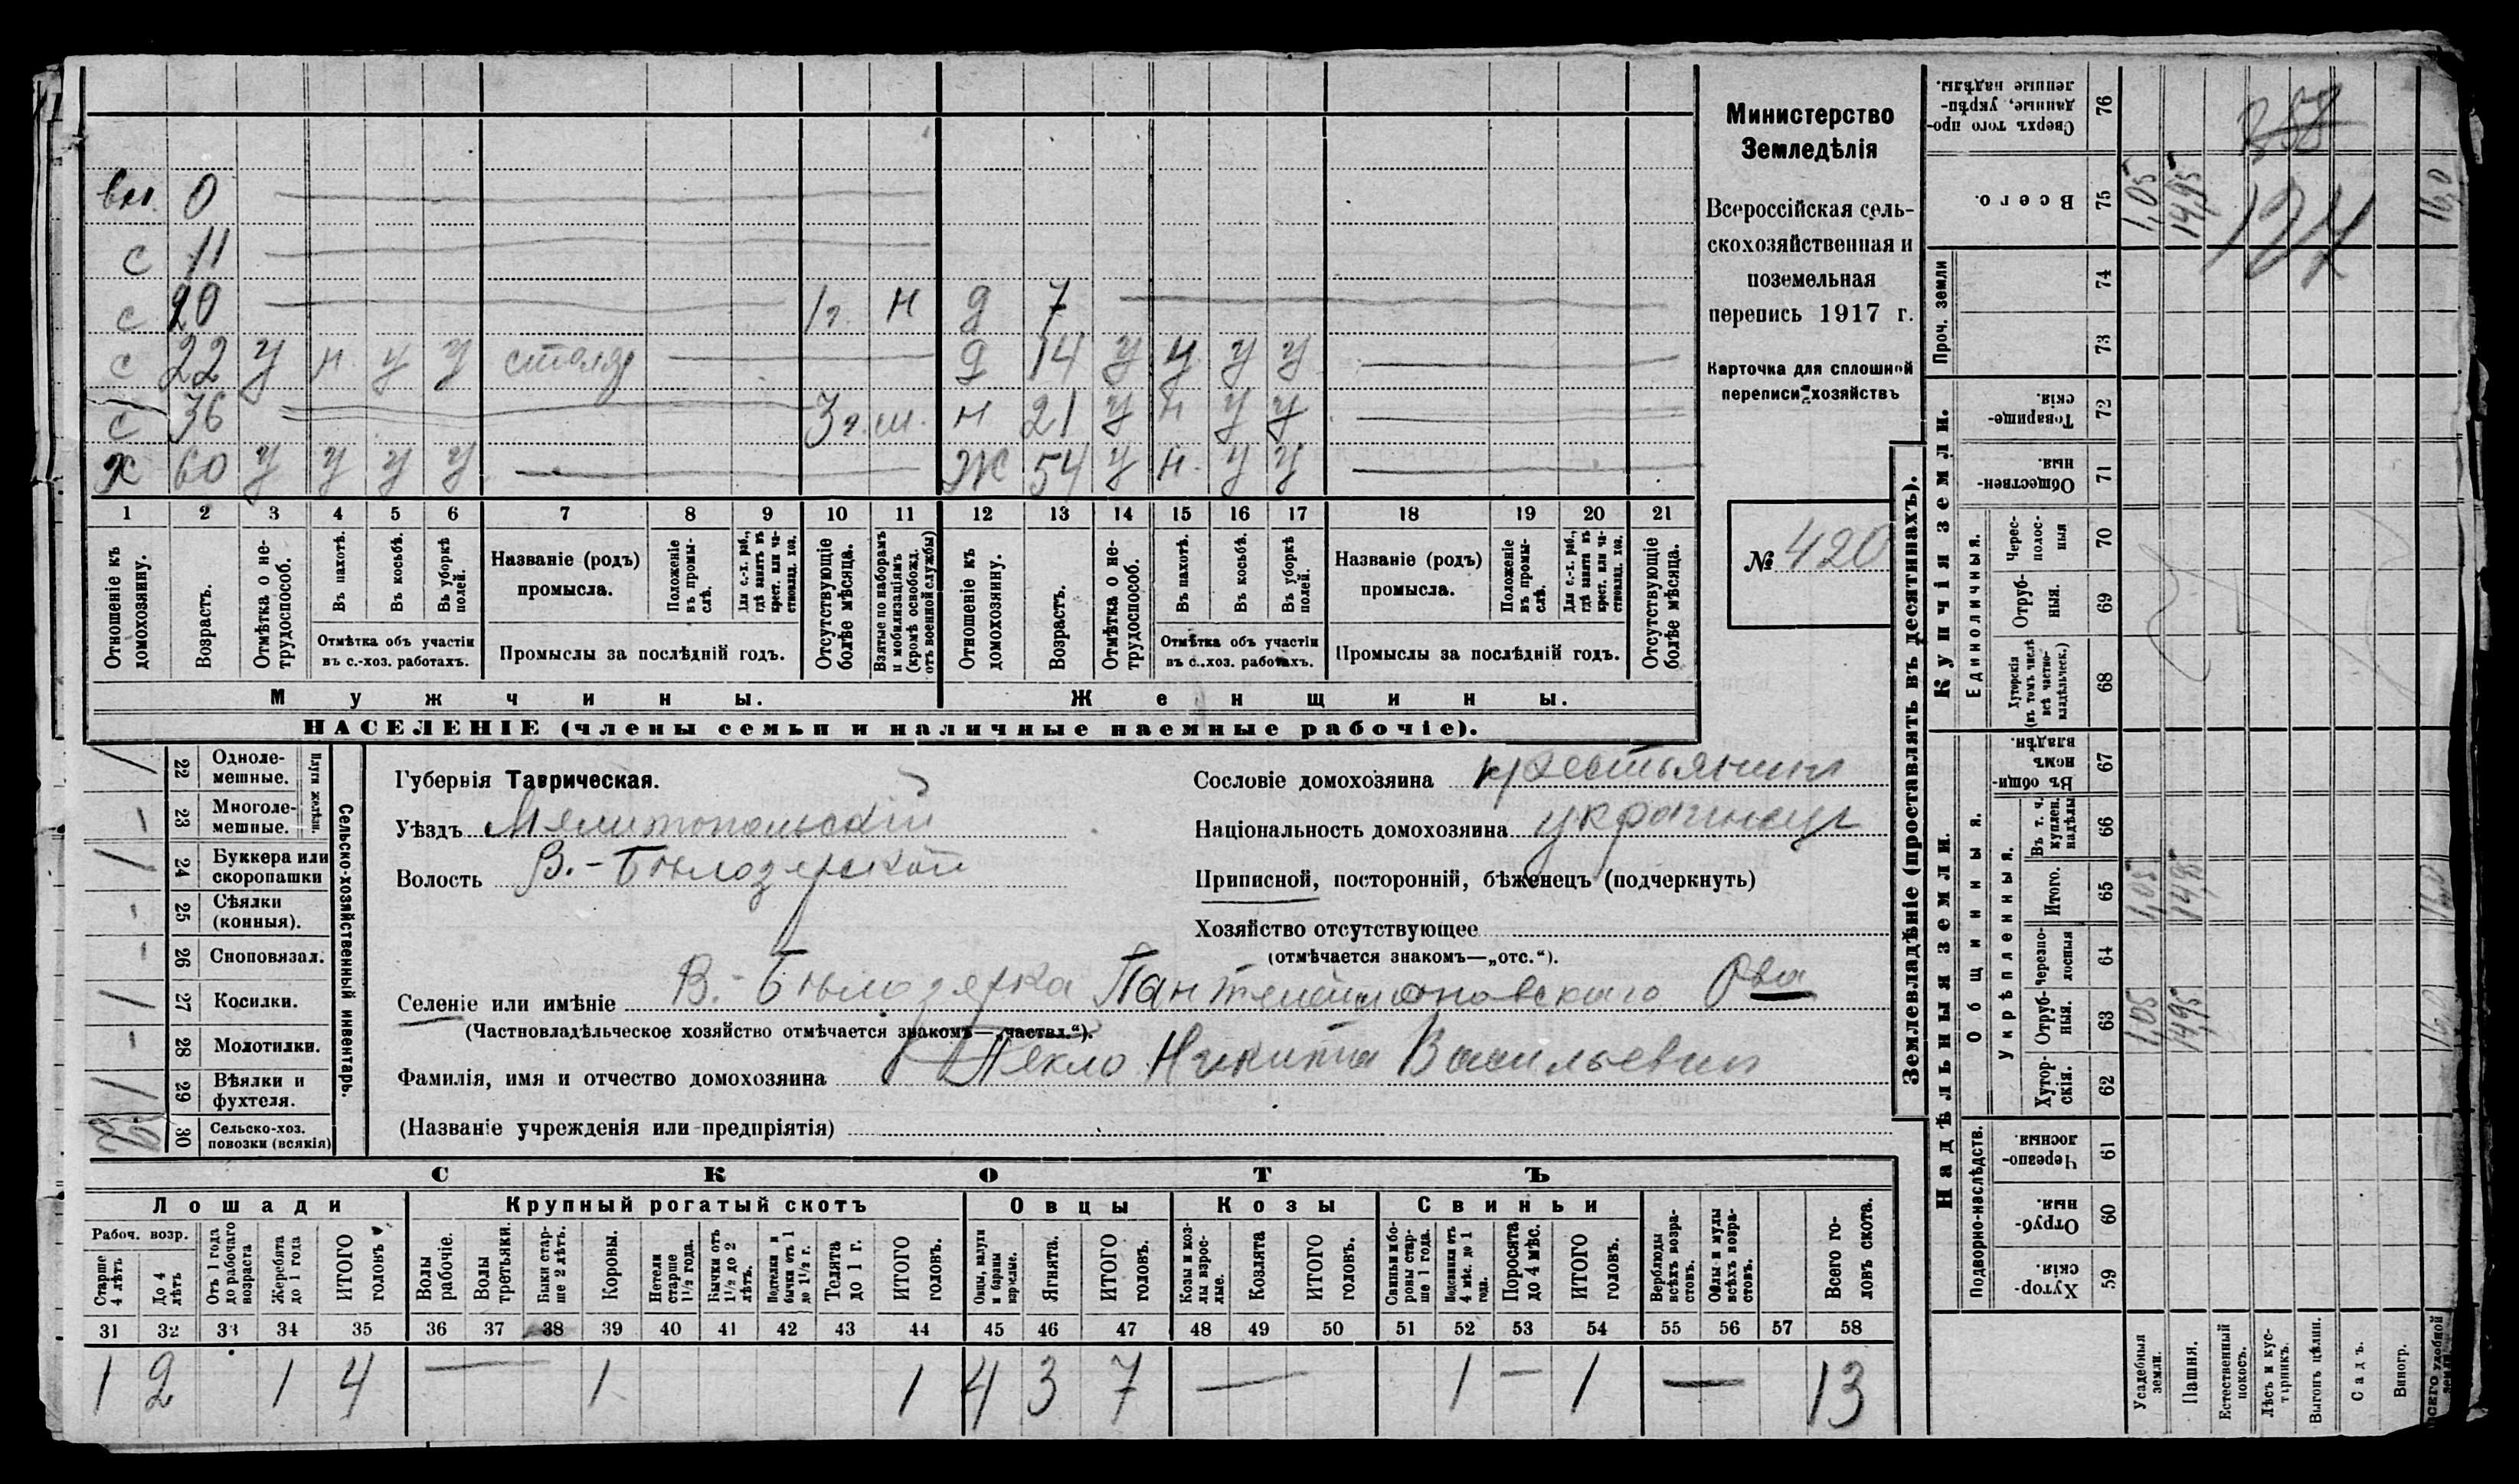 вн. 0
с 11
с 20 1 г. н д 7
с 22 у н у у столяр д 14 у у у у
с 36 3 г. ш. н 21 у н у у
х 60 у у у у Ж 54 у н. у у
1 2 3 4 5 6 7 8 9 10 11 12 13 14 15 16 17 18 19 20 21
Отношеніе къ домохозяину.
Возрастъ.
Отмѣтка о не-трудоспособ.
Въ пахотѣ.
Въ косьбѣ.
Въ уборкѣ полей.
Отмѣтка объ участіи
въ с.-хоз. работахъ.
Названіе (родъ)
промысла.
Положеніе въ промы-слѣ.
Для с.-х. раб., гдѣ занятъ въ крест. или ча-стновлад. хоз.
Промыслы за послѣдній годъ.
Отсутствующіе болѣе мѣсяца.
Взятые по наборамъ и мобилизаціямъ (кромѣ освобожд. отъ военной службы)
Отношеніе къ домохозяину.
Возрастъ.
Отмѣтка о не-трудоспособ.
Въ пахотѣ.
Въ косьбѣ.
Въ уборкѣ полей.
Отмѣтка объ участіи
въ с.-хоз. работахъ.
Названіе (родъ)
промысла.
Положеніе въ промы-слѣ.
Для с.-х. раб., гдѣ занятъ въ крест. или ча-стновлад. хоз.
Промыслы за послѣдній годъ.
Отсутствующіе болѣе мѣсяца.
Мужчины. Женщины.
НАСЕЛЕНІЕ (члены семьи и наличные наемные рабочіе).
Министерство
Земледѣлія
Всероссійская сель-
скохозяйственная и
поземельная
перепись 1917 г.
Карточка для сплошной
переписи хозяйствъ
№ 420
Сельско-хозяйственный инвентарь.
Плуги желѣзн.
22 Одноле-мешные. /
23 Многоле-мешные. -
24 Буккера или скоропашки /
25 Сѣялки (конныя). -
26 Сноповязал. -
27 Косилки. /
28 Молотилки. -
29 Вѣялки и фухтеля. /
30 Сельско-хоз. повозки (всякія)
Губернія Таврическая.
Уѣздъ Мелитопольскій
Волость В.-Бѣлозерской
Сословіе домохозяина крестьянинъ
Національность домохозяина украинецъ
Приписной, посторонній, бѣженецъ (подчеркнуть)
Хозяйство отсутствующее
(отмѣчается знакомъ—„отс.“).
Селеніе или имѣніе В.-Бѣлозерка Пантелеймоновскаго О-ва
(Частновладѣльческое хозяйство отмѣчается знакомъ—„частвл.“).
Фамилія, имя и отчество домохозяина Пекло Никита Васильевич
(Названіе учрежденія или предпріятія)
СКОТЪ
Лошади Крупный рогатый скотъ Овцы Козы Свиньи
Рабоч. возр.
Старше 4 лѣтъ
До 4 лѣтъ
Отъ 1 года до рабочаго возраста
Жеребята до 1 года
ИТОГО головъ
Волы рабочіе.
Волы третьяки.
Быки стар-ше 2 лѣтъ.
Коровы.
Нетели старше 1½ года.
Бычки отъ 1½ до 2 лѣтъ.
Телята до 1 г.
ИТОГО головъ.
Овцы, валухи и бараны взрослые.
Ягнята.
ИТОГО головъ.
Козы и коз-лы взрос-лые.
Козлята
ИТОГО головъ.
Свиньи и бо-ровы стар-ше 1 года.
Подсвинки отъ 4 мѣс. до 1 года.
Поросята до 4 мѣс.
ИТОГО головъ.
Верблюды всѣхъ возра-стовъ.
Ослы и мулы всѣхъ возра-стовъ.
Всего го-ловъ скота.
31 32 33 34 35 36 37 38 39 40 41 42 43 44 45 46 47 48 49 50 51 52 53 54 55 56 57 58
1 2 1 4 — 1 1 4 3 7 — 1 — 1 — 13
Землевладѣніе (проставлять въ десятинахъ).
Надѣльныя земли. Купчія земли. Проч. земли
Подворно-наслѣдств.
Общинныя.
Укрѣпленныя.
Единоличныя.
59 Хутор-скія.
60 Отруб-ныя
61 Черезпо-лосныя
62 Хутор-скія.
63 Отруб-ныя. 1,05 14,95 16,0
64 Черезпо-лосныя
65 Итого. 1,05 14,95 16,0
66 Въ т. ч. куплен. надѣлы
67 Въ общи-номъ владѣн.
68 Хуторскія (въ томъ числѣ всѣ частно-владѣльческ.)
69 Отруб-ныя.
70 Черес-полос-ныя
71 Обществен-ныя.
72 Товарище-скія.
73
74
75 Всего. 1,05 14,95 16,0
76 Сверхъ того про-данные, укрѣп-ленные надѣлы.
Усадебныя земли.
Пашня.
Естественный покосъ.
Лѣсъ и кус-тарникъ.
Выгонъ цѣлин.
Садъ.
Виногр.